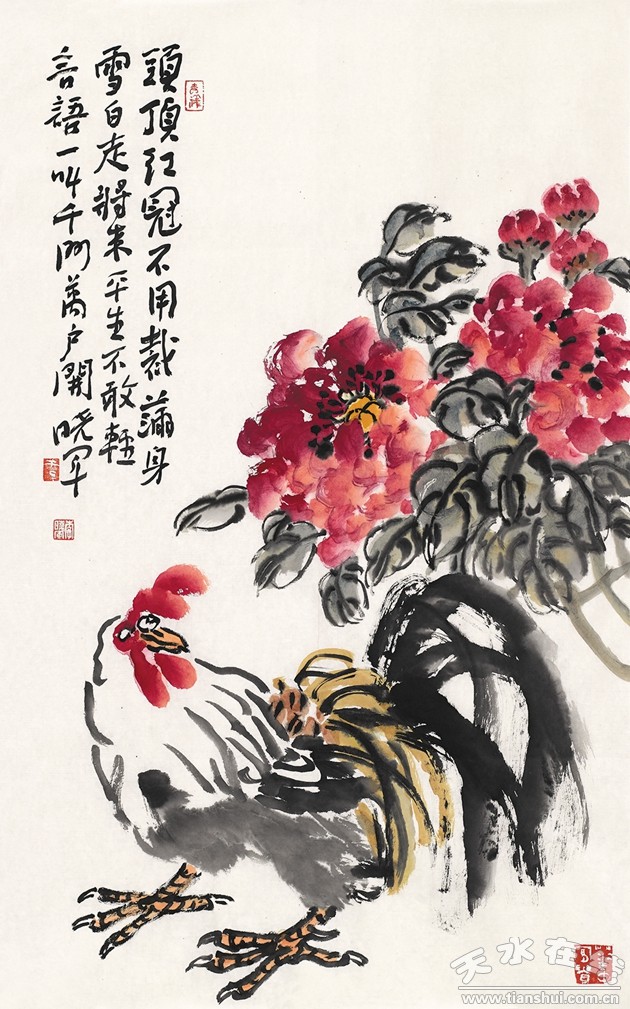 頭頂紅冠不用裁蒲身
雪白走將来平生不敢輕
言語一叫千門萬户開曉军
天水在线
www.tianshui.com.cn